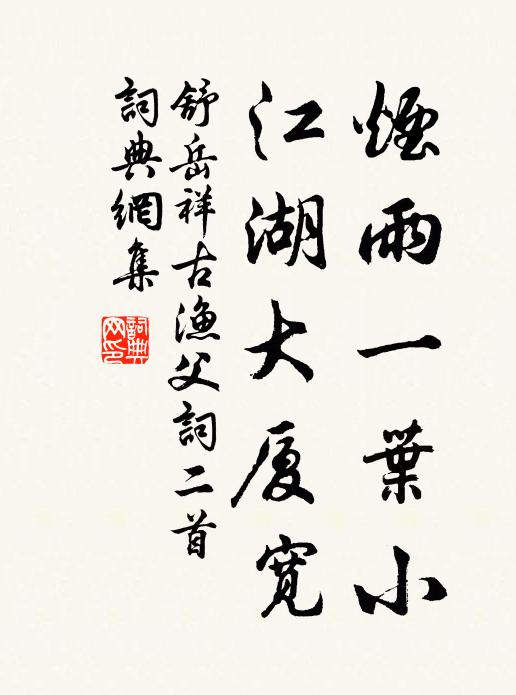 煙雨一葉小
江湖大厦寛
舒岳祥古漁父詞二首
詞典網集
詞典网印